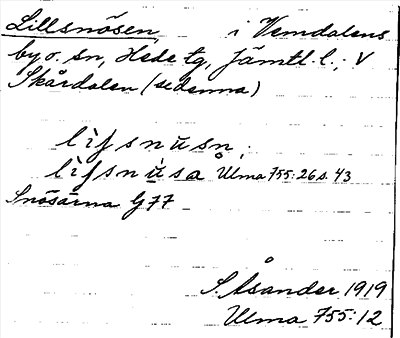 Lillsnösen, i Vemdalens
by o. sn, Hede tg, Jämtl. l.; V
Skårdalen (se denna)
lìfsnùsn,
lìfsnùsa Ulma 755:26 s. 43
Snösarna G 77
S. Åsander 1919
Ulma 755:12